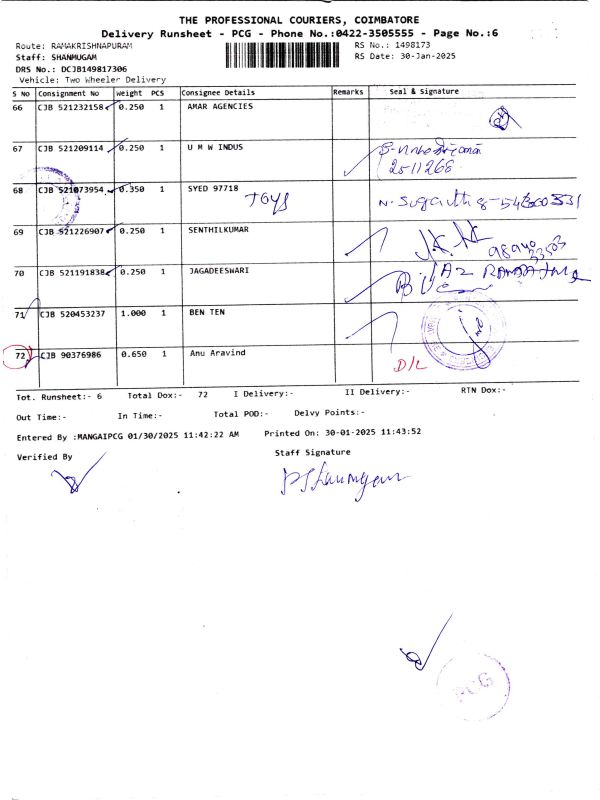 THE PROFESSIONAL COURIERS, COIMBATORE
Delivery Runsheet - PCG - Phone No.:0422-3505555 - Page No.:6
Route: RAMAKRISHNAPURAM
RS No.: 1498173
Staff: SHANMUGAM
RS Date: 30-Jan-2025
DRS No.: DCJB149817306
Vehicle: Two Wheeler Delivery
S No Consignment No Weight PCS Consignee Details Remarks Seal & Signature
66 CJB 521232158 0.250 1 AMAR AGENCIES
67 CJB 521209114 0.250 1 U M W INDUS
25-11266
68 CJB 521073954 0.350 1 SYED 97718 TOYS
69 CJB 521226907 0.250 1 SENTHILKUMAR
70 CJB 521191838 0.250 1 JAGADEESWARI
71 CJB 520453237 1.000 1 BEN TEN
72 CJB 90376986 0.650 1 Anu Aravind D/L
Tot. Runsheet:- 6 Total Dox:- 72 I Delivery:- II Delivery:- RTN Dox:-
Out Time:- In Time:- Total POD:- Delvy Points:-
Entered By :MANGAIPCG 01/30/2025 11:42:22 AM Printed On: 30-01-2025 11:43:52
Verified By Staff Signature
PCG